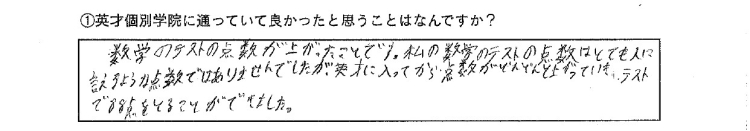 ①英才個別学院に通っていて良かったと思うことはなんですか？
数学のテストの点数が上がったことです。私の数学のテストの点数はとても人に
言えるような点数ではありませんでしたが英才に入ってから点数がぜんぜん上がっていき、テスト
で88点をとることができました。